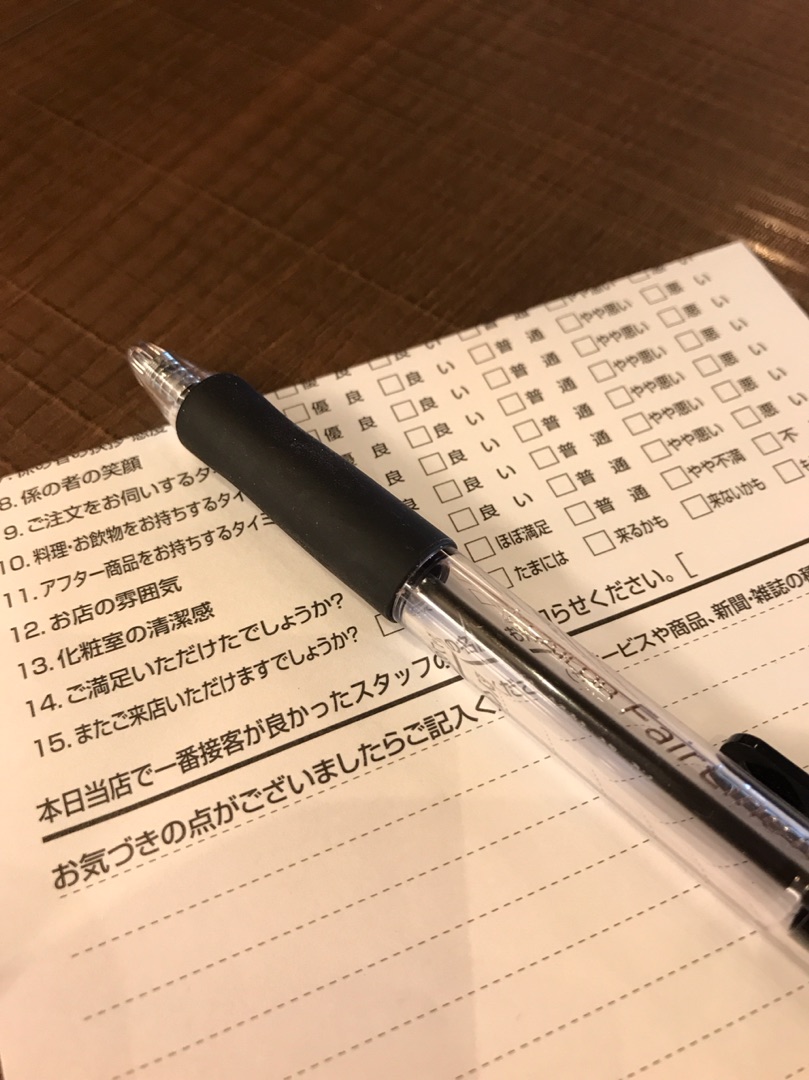 8. 係の者の笑顔
9. ご注文をお伺いするタ
10. 料理・お飲物をお持ちするタイミ
11. アフター商品をお持ちするタイミ
12. お店の雰囲気
13. 化粧室の清潔感
14. ご満足いただけたでしょうか?
15. またご来店いただけますでしょうか?
□やや悪い □悪い
□優良 □良い □普通 □やや悪い □悪い
□優良 □良い □普通 □やや悪い □悪い
良 □良い □普通 □やや悪い □悪い
良 □良い □普通 □やや悪い □悪い
□良い □普通 □やや悪い □悪い
□ほぼ満足 □普通 □やや不満 □不
□たまには □来るかも □来ないかも
本日当店で一番接客が良かったスタッフの お らせください。[
お気づきの点がございましたらご記入くださ ービスや商品、新聞・雑誌の
Fair